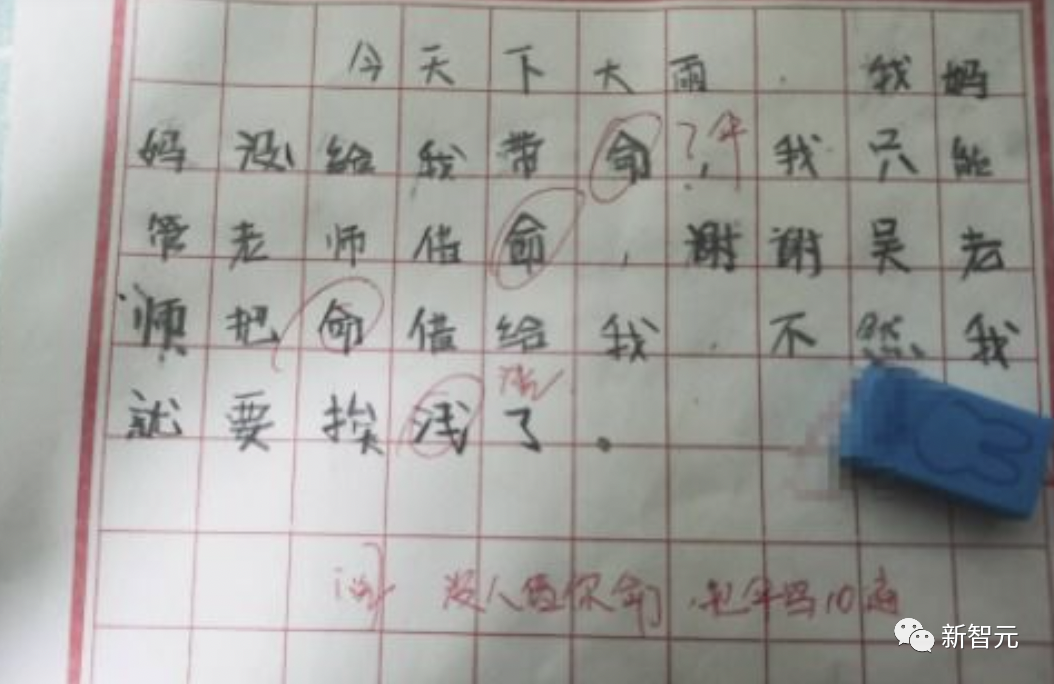 今天下大雨.我妈
妈没给我带命?伞,我只能
管老师借命,谢谢吴老
师把命借给我.不然我
就要挨浅了。
没人管你命,把伞写10遍
新智元